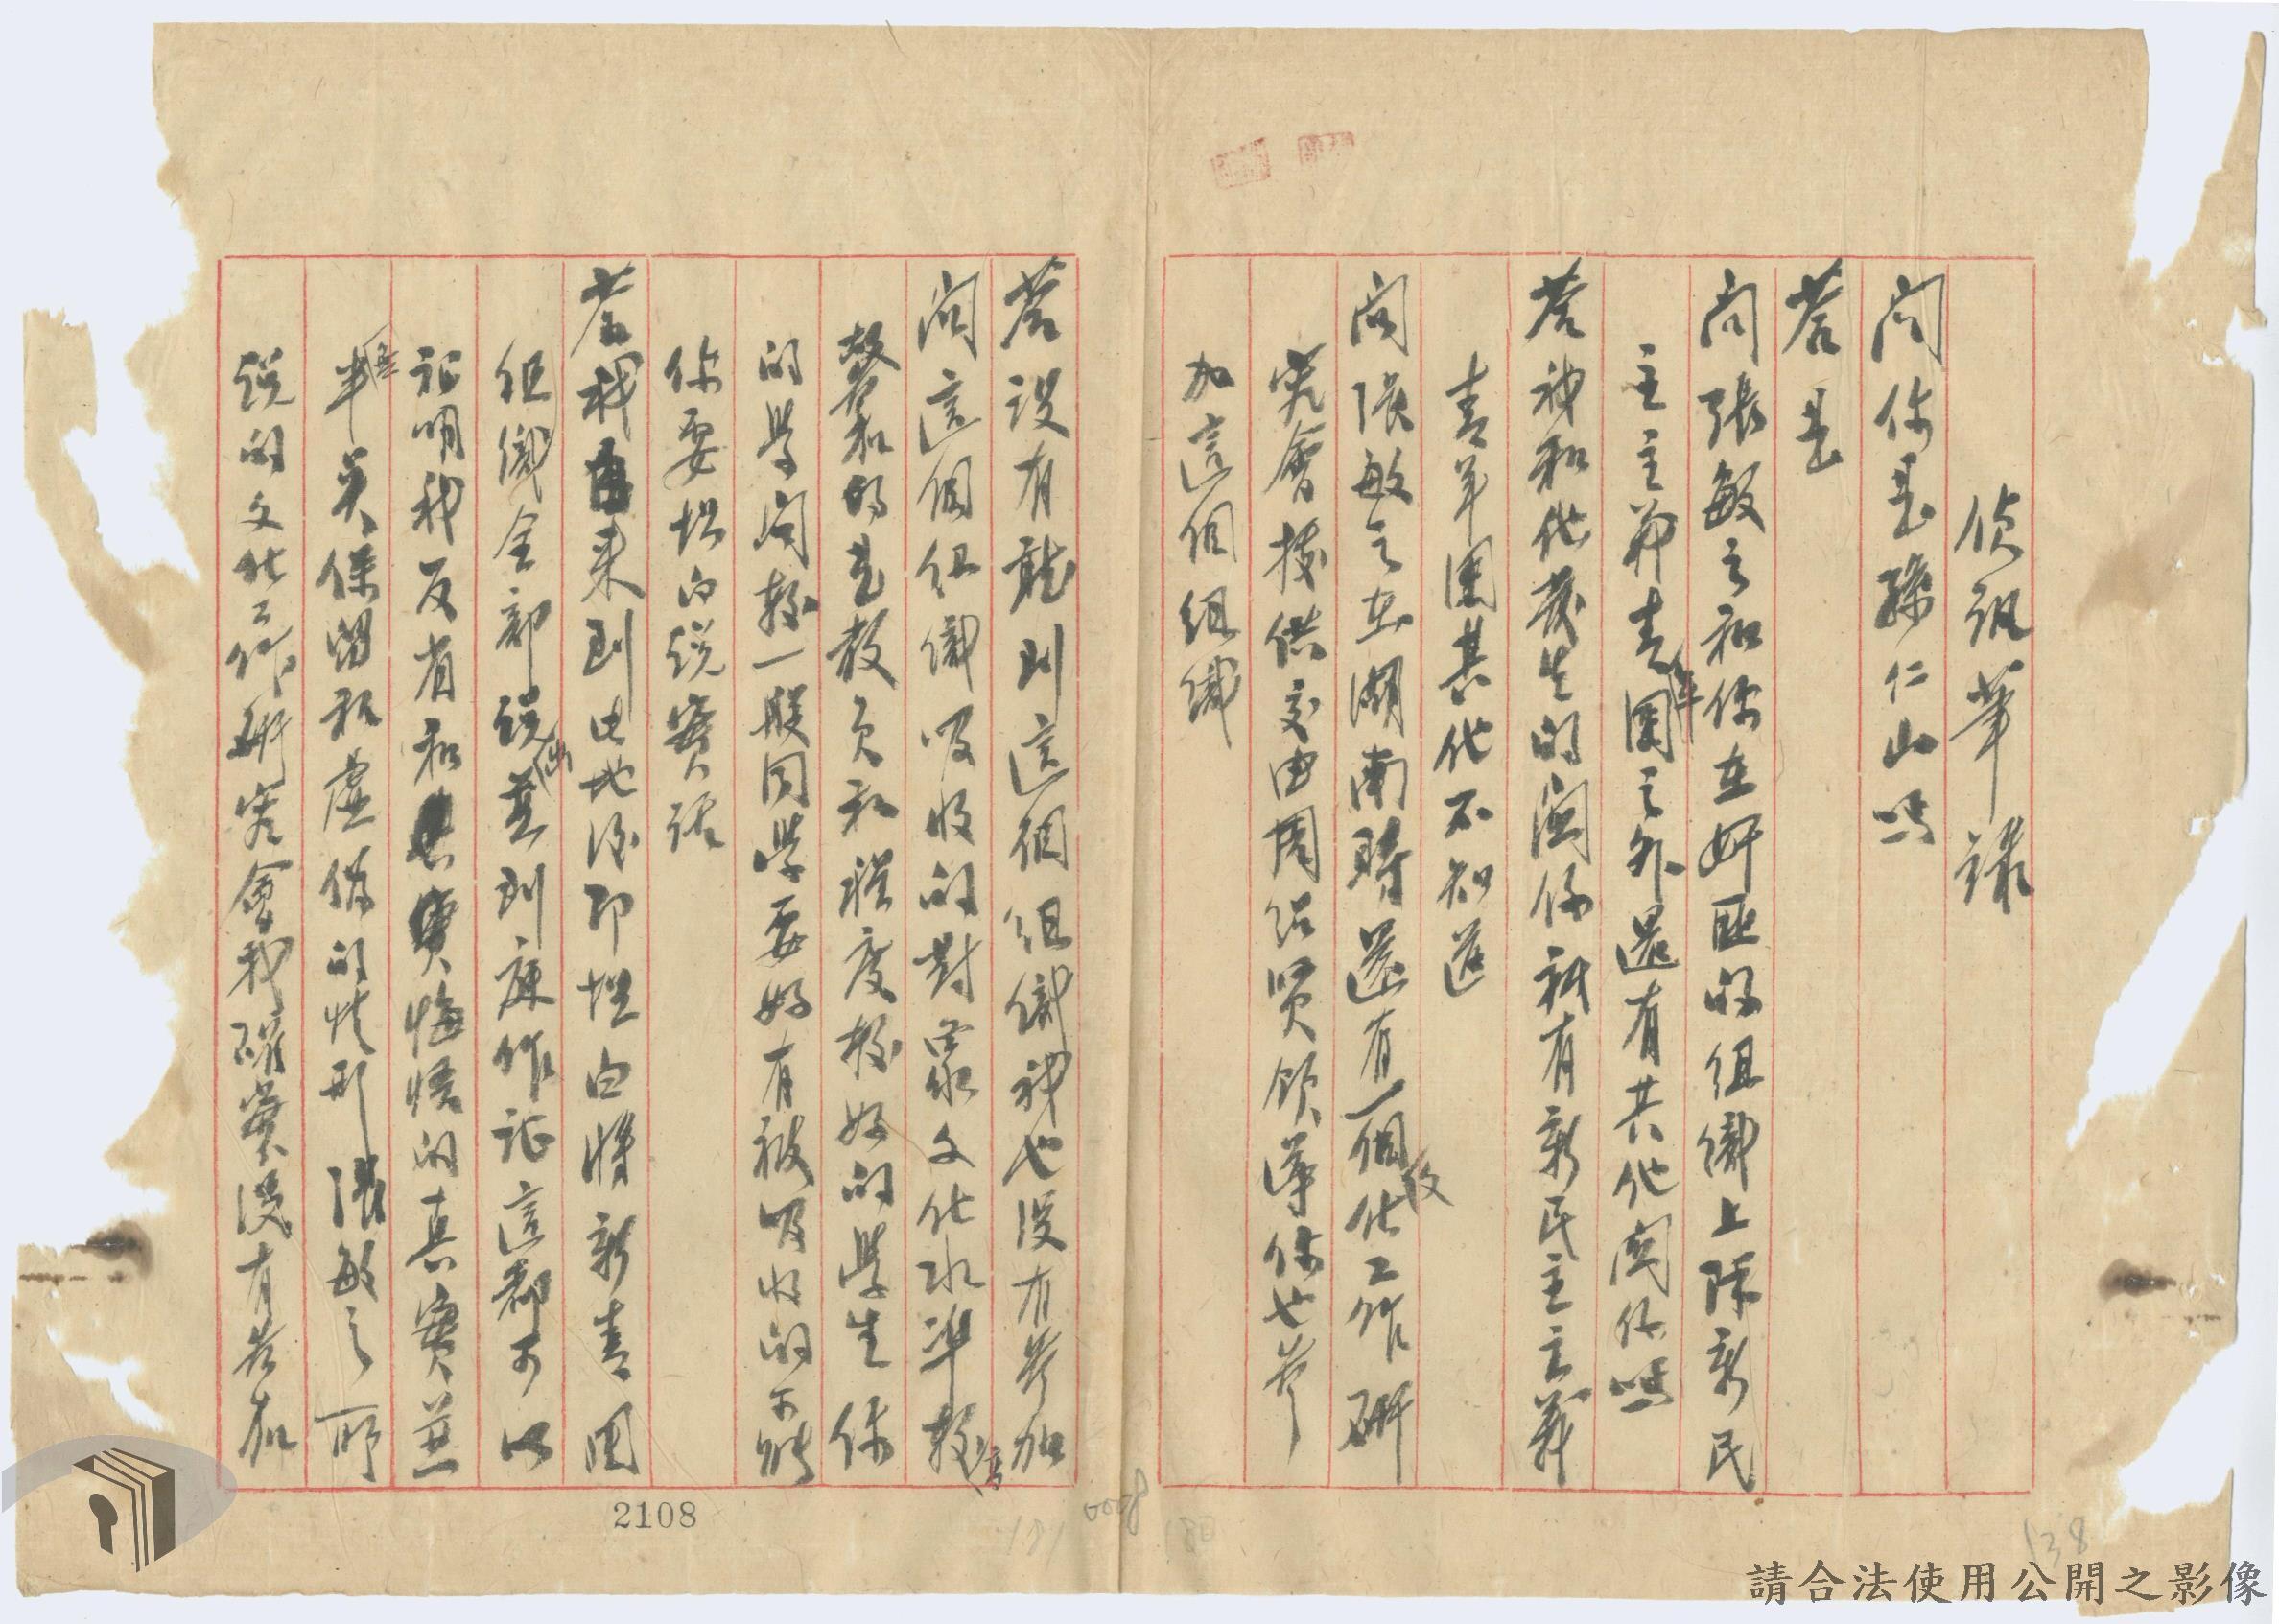 偵訊筆錄
問你是孫仁山嗎
答是
問張敏之和你在奸匪的組織上除新民
主主義青年團之外還有其他關係嗎
答我和他發生的關係祇有新民主主義
青年團其他不知道
問張敏之在湖南時還有一個文化工作研
究會據供交由周紹賢領導你也參
加這個組織
答沒有聽到這個組織我也沒有參加
問這個組織吸收的對象文化水準較高
的是教員和程度較好的學生你
的學問較一般同學要好有被吸收的可能
你要坦白說實話
答我來到此地後即坦白將新青團
組織全部說出並到庭作証這都可以
証明我反省和悔悟的真實並
半點保留和虛偽的情形張敏之所
說的文化工作研究會我確實沒有參加
2108
請合法使用公開之影像